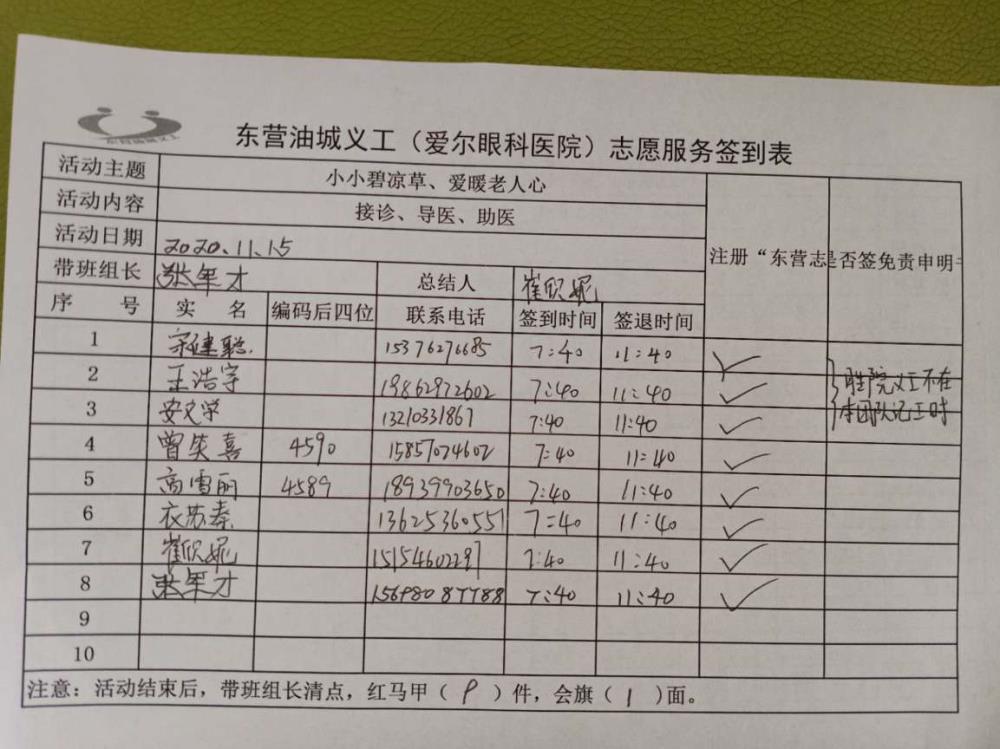 东营油城义工
东营油城义工（爱尔眼科医院）志愿服务签到表
活动主题 小小碧凉草、爱暖老人心
活动内容 接诊、导医、助医
活动日期 2020.11.15 注册“东营志 是否签免责申明书
带班组长 张军才 总结人 崔欣妮
序 号 实 名 编码后四位 联系电话 签到时间 签退时间
1 宋建聪 15376276685 7:40 11:40 ✓
2 王浩宇 19862972602 7:40 11:40 ✓ 胜院义工不在
3 安文学 13210331867 7:40 11:40 ✓ 本团队记工时
4 曾笑喜 4590 15857074602 7:40 11:40 ✓
5 高雪丽 4589 18939903650 7:40 11:40 ✓
6 衣苏秦 13625360551 7:40 11:40 ✓
7 崔欣妮 15154602297 7:40 11:40 ✓
8 张军才 7:40 11:40 ✓
9
10
注意：活动结束后，带班组长清点，红马甲（ ）件，会旗（ 1 ）面。